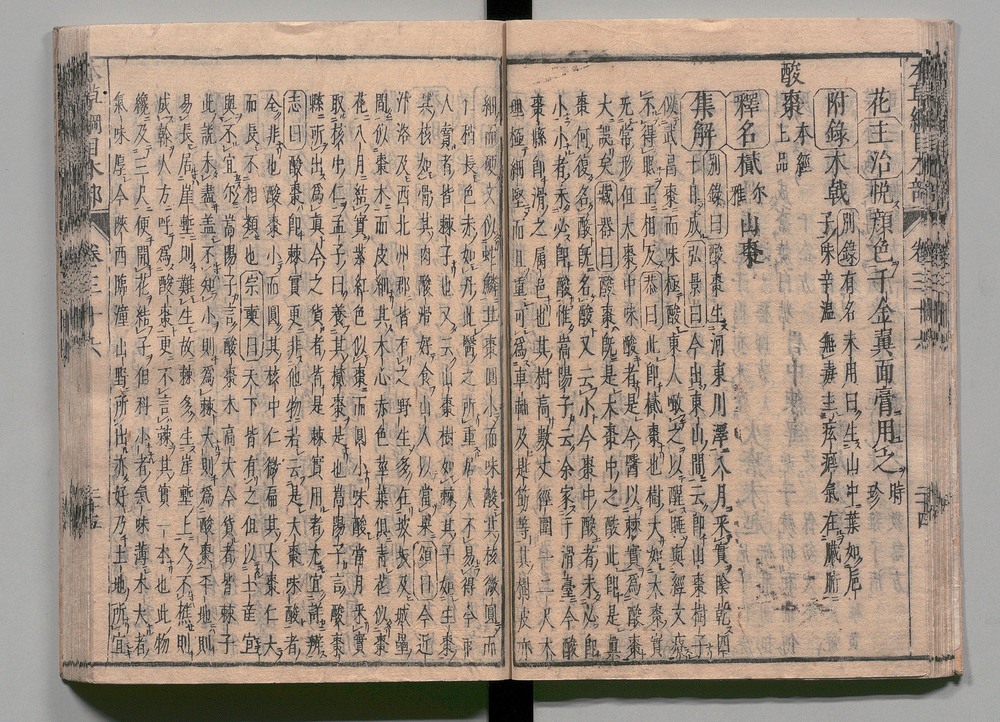 花 主治 悦顔色千金翼面膏用之 時珍
附錄 木戟 別錄有名未用曰生山中葉如巵
子味辛溫無毒主痃癖氣在臟腑
酸棗 本經上品
釋名 樲 尔雅 山棗
集解 別錄曰酸棗生河東川澤八月采實陰乾四
十日成 弘景曰今出東山間云即山棗樹子
似武昌棗而味極酸東人噉之以醒睡與經文療
不得眠正相反 恭曰此即樲棗也樹大如大棗實
无常形但大棗中味酸者是今醫以棘實為酸棗
大誤矣 藏器曰酸棗既是大棗中之酸者此即是真
棗何復名酸既名酸又云小今棗中酸者未必即
小小者未必即酸惟嵩陽子云余家于滑臺今酸
棗縣即滑之屬邑也其樹高數丈徑圍一二尺木
理極細堅而且重可為車軸及匙筯等其樹皮亦
細而硬文似蛇鱗其棗圓小而味酸其核微圓而
仁稍長色赤如丹此醫之所重居人不易得今市
人賣者皆棘子也又云山棗樹如棘其子如生棗
其核如骨其肉酸滑好食山人以當果 頌曰今近
汴洛及西北州郡皆有之野生多在坡坂及城壘
間似棗木而皮細其木心赤色莖葉俱青花似棗
花八月結實紫紅色似棗而圓小味酸當月采實
取核中仁孟子曰養其樲棗是也嵩陽子言酸棗
縣所出為真今之貨者皆是棘實用者尤宜詳辨
志曰酸棗即棘實更非他物若云是大棗味酸者
全非也酸棗小而圓其核中仁微扁其大棗仁大
而長不相類也 宗奭曰天下皆有之但以土産宜
與不宜尔嵩陽子言酸棗木高大今貨者皆棘子
此說未盡盖不知小則為棘大則為酸棗平地則
易長居崖塹則難生故棘多生崖塹上久不樵則
成榦人方呼為酸棗更不言棘其實一本也此物
纔及三尺便開花結子但科小者氣味薄木大者
氣味厚今陝西臨潼山野所出亦好乃土地所宜